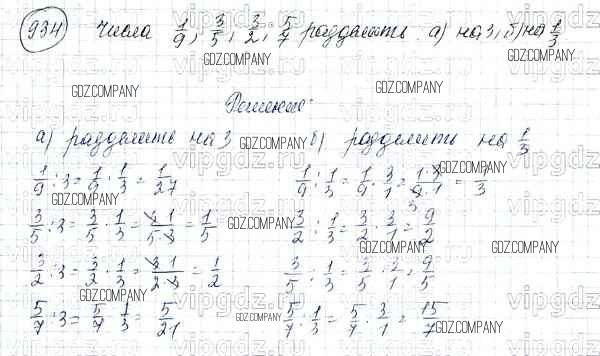 934 Числа 1/9; 3/5; 3/2; 5/7 разделить: а) на 3, б) на 1/3
Решение:
а) разделить на 3
1/9 : 3 = 1/9 · 1/3 = 1/27
3/5 : 3 = 3/5 · 1/3 = 3·1/5·3 = 1/5
3/2 : 3 = 3/2 · 1/3 = 3·1/2·3 = 1/2
5/7 : 3 = 5/7 · 1/3 = 5/21
б) разделить на 1/3
1/9 : 1/3 = 1/9 · 3/1 = 1·3/9·1 = 1/3
3
3/2 : 1/3 = 3/2 · 3/1 = 9/2
3/5 : 1/3 = 3/5 · 3/1 = 9/5
5/7 : 1/3 = 5/7 · 3/1 = 15/7
GDZ.COMPANY
vipgdz.ru